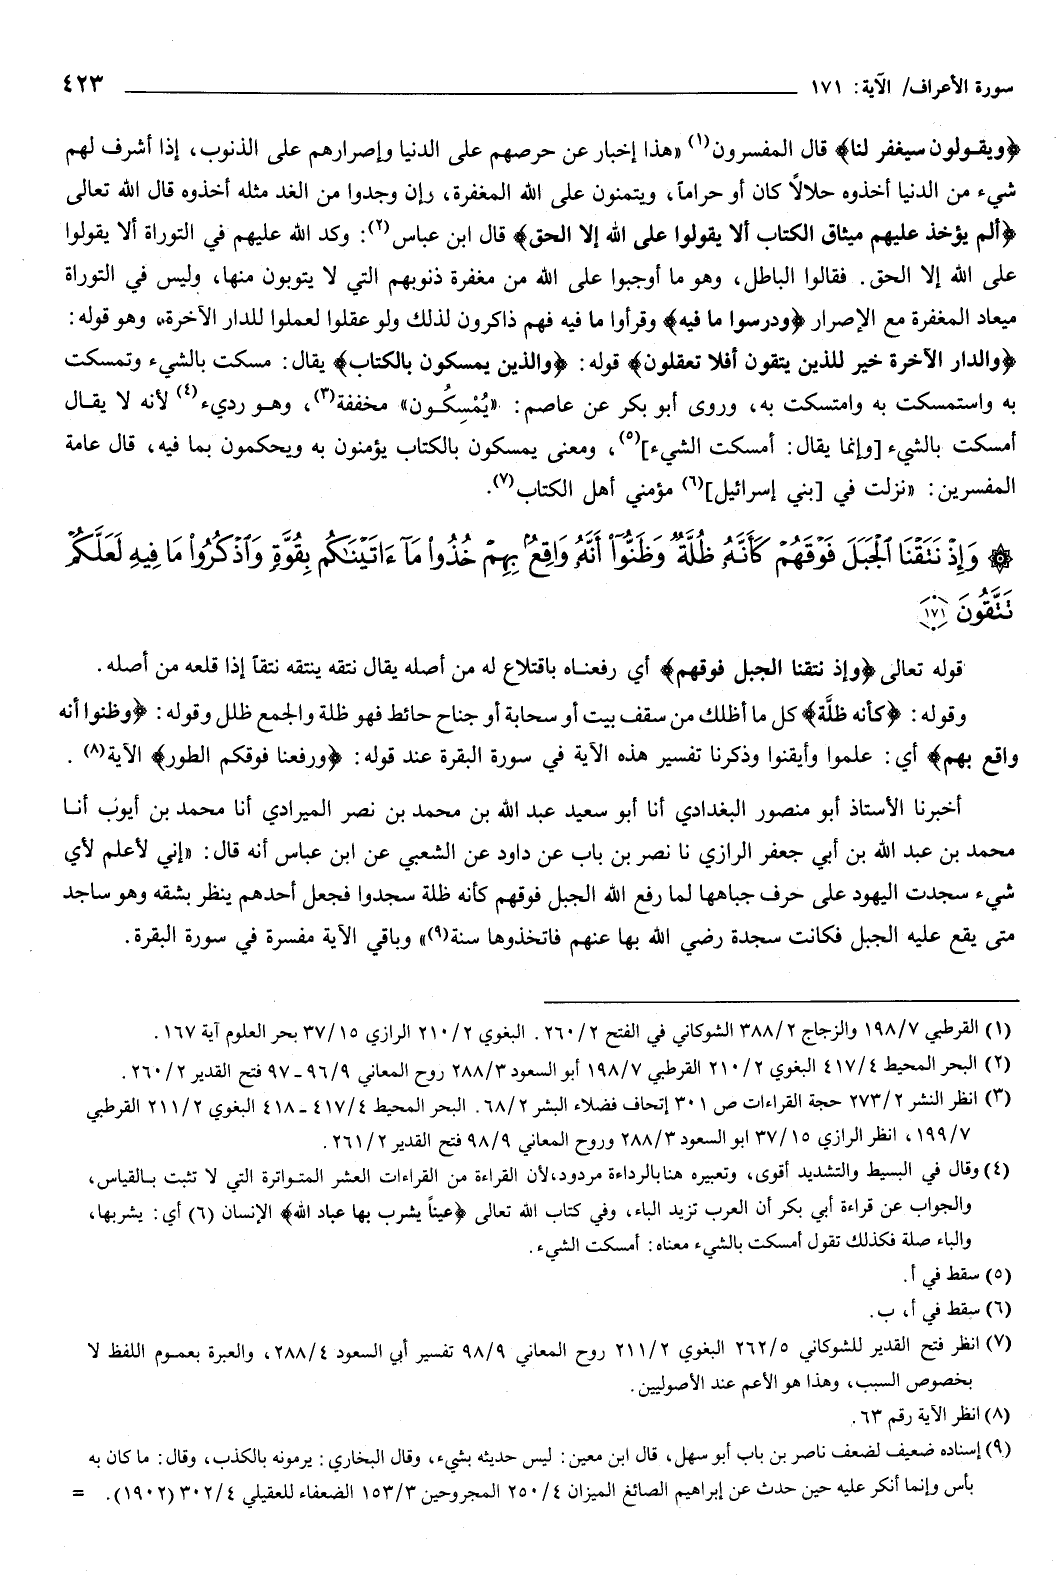 سورة الأعراف/ الآية: ١٧١ ٤٢٣
﴿ويقـولون سيغفر لنا﴾ قال المفسرون(١) «هذا إخبار عن حرصهم على الدنيا وإصرارهم على الذنوب، إذا أشرف لهم
شيء من الدنيا أخذوه حلالاً كان أو حراماً، ويتمنون على الله المغفرة، رإن وجدوا من الغد مثله أخذوه قال الله تعالى
﴿ألم يؤخذ عليهم ميثاق الكتاب ألا يقولوا على الله إلا الحق﴾ قال ابن عباس(٢): وكد الله عليهم في التوراة ألا يقولوا
على الله إلا الحق. فقالوا الباطل، وهو ما أوجبوا على الله من مغفرة ذنوبهم التي لا يتوبون منها، وليس في التوراة
ميعاد المغفرة مع الإصرار ﴿ودرسوا ما فيه﴾ وقرأوا ما فيه فهم ذاكرون لذلك ولو عقلوا لعملوا للدار الآخرة» وهو قوله:
﴿والدار الآخرة خير للذين يتقون أفلا تعقلون﴾ قوله: ﴿والذين يمسكون بالكتاب﴾ يقال: مسكت بالشيء وتمسكت
به واستمسكت به وامتسكت به، وروى أبو بكر عن عاصم: «يُمْسِكُـون» مخففة(٣)، وهـو رديء(٤) لأنه لا يقـال
أمسكت بالشيء [وإنما يقال: أمسكت الشيء](٥)، ومعنى يمسكون بالكتاب يؤمنون به ويحكمون بما فيه، قال عامة
المفسرين: «نزلت في [بني إسرائيل](٦) مؤمني أهل الكتاب(٧).
۞ وَإِذْ نَتَقْنَا ٱلْجَبَلَ فَوْقَهُمْ كَأَنَّهُۥ ظُلَّةٌ وَظَنُّوٓا۟ أَنَّهُۥ وَاقِعٌۢ بِهِمْ خُذُوا۟ مَآ ءَاتَيْنَٰكُم بِقُوَّةٍ وَٱذْكُرُوا۟ مَا فِيهِ لَعَلَّكُمْ
تَتَّقُونَ ١٧١
قوله تعالى ﴿وإذ نتقنا الجبل فوقهم﴾ أي رفعنـاه باقتلاع له من أصله يقال نتقه ينتقه نتقاً إذا قلعه من أصله.
وقوله: ﴿كأنه ظلَّة﴾ كل ما أظلك من سقف بيت أو سحابة أو جناح حائط فهو ظلة والجمع ظلل وقوله: ﴿وظنوا أنه
واقع بهم﴾ أي: علموا وأيقنوا وذكرنا تفسير هذه الآية في سورة البقرة عند قوله: ﴿ورفعنا فوقكم الطور﴾ الآية(٨).
أخبرنا الأستاذ أبو منصور البغدادي أنا أبو سعيد عبد الله بن محمد بن نصر الميرادي أنا محمد بن أيوب أنـا
محمد بن عبد الله بن أبي جعفر الرازي نا نصر بن باب عن داود عن الشعبي عن ابن عباس أنه قال: «إني لأعلم لأي
شيء سجدت اليهود على حرف جباهها لما رفع الله الجبل فوقهم كأنه ظلة سجدوا فجعل أحدهم ينظر بشقه وهو ساجد
متى يقع عليه الجبل فكانت سجدة رضي الله بها عنهم فاتخذوها سنة(٩)» وباقي الآية مفسرة في سورة البقرة.
(١) القرطبي ١٩٨/٧ والزجاج ٣٨٨/٢ الشوكاني في الفتح ٢٦٠/٢. البغوي ٢١٠/٢ الرازي ٣٧/١٥ بحر العلوم آية ١٦٧.
(٢) البحر المحيط ٤١٧/٤ البغوي ٢١٠/٢ القرطبي ١٩٨/٧ أبو السعود ٢٨٨/٣ روح المعاني ٩٦/٩ ـ ٩٧ فتح القدير ٢٦٠/٢.
(٣) انظر النشر ٢٧٣/٢ حجة القراءات ص ٣٠١ إتحاف فضلاء البشر ٦٨/٢. البحر المحيط ٤١٧/٤ ـ ٤١٨ البغوي ٢١١/٢ القرطبي
١٩٩/٧، انظر الرازي ٣٧/١٥ ابو السعود ٢٨٨/٣ وروح المعاني ٩٨/٩ فتح القدير ٢٦١/٢.
(٤) وقال في البسيط والتشديد أقوى، وتعبيره هنا بالرداءة مردود، لأن القراءة من القراءات العشر المتـواترة التي لا تثبت بـالقياس،
والجواب عن قراءة أبي بكر أن العرب تزيد الباء، وفي كتاب الله تعالى ﴿عيناً يشرب بها عباد الله﴾ الإنسان (٦) أي: يشربها،
والباء صلة فكذلك تقول أمسكت بالشيء معناه: أمسكت الشيء.
(٥) سقط في أ.
(٦) سقط في أ، ب.
(٧) انظر فتح القدير للشوكاني ٢٦٢/٥ البغوي ٢١١/٢ روح المعاني ٩٨/٩ تفسير أبي السعود ٢٨٨/٤، والعبرة بعمـوم اللفظ لا
بخصوص السبب، وهذا هو الأعم عند الأصوليين.
(٨) انظر الآية رقم ٦٣.
(٩) إسناده ضعيف لضعف ناصر بن باب أبو سهل، قال ابن معين: ليس حديثه بشيء، وقال البخاري: يرمونه بالكذب، وقال: ما كان به
بأس وإنما أنكر عليه حين حدث عن إبراهيم الصائغ الميزان ٢٥٠/٤ المجروحين ١٥٣/٣ الضعفاء للعقيلي ٣٠٢/٤ (١٩٠٢). =